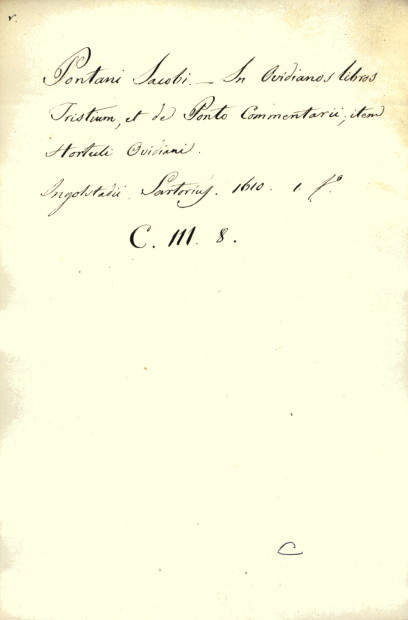 r.
Pontani Jacobi. — In Ovidianos libros
Tristium, et de Ponto Commentarii; item
Hortuli Ovidiani.
Ingolstadii. Sartorius. 1610. 1. fº.
C. III. 8.
C